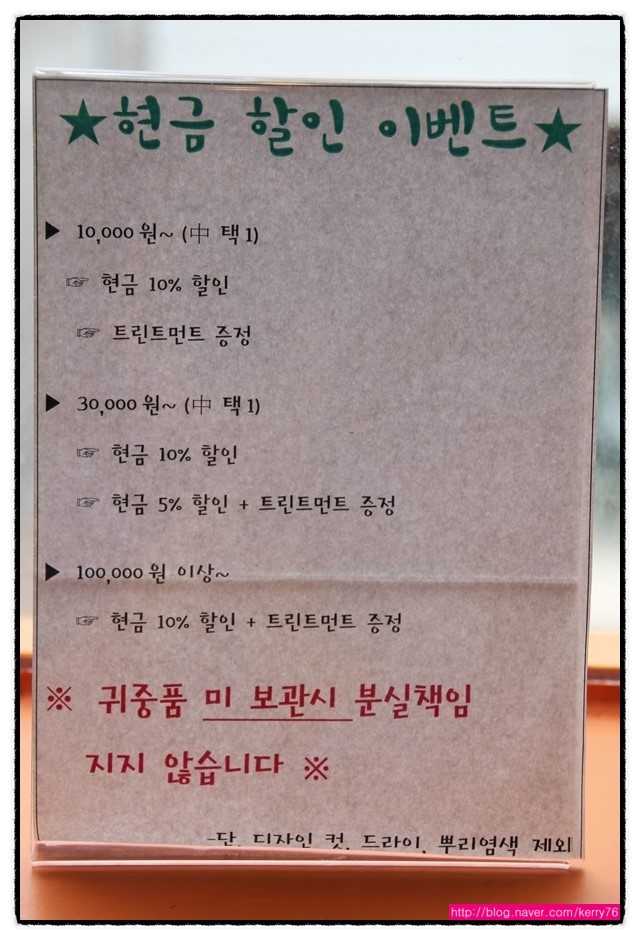 ★현금 할인 이벤트★
▶ 10,000원~ (中 택1)
☞ 현금 10% 할인
☞ 트린트먼트 증정
▶ 30,000원~ (中 택1)
☞ 현금 10% 할인
☞ 현금 5% 할인 + 트린트먼트 증정
▶ 100,000원 이상~
☞ 현금 10% 할인 + 트린트먼트 증정
※ 귀중품 미 보관시 분실책임
지지 않습니다 ※
-단, 디자인 컷, 드라이, 뿌리염색 제외
http://blog.naver.com/kerry76